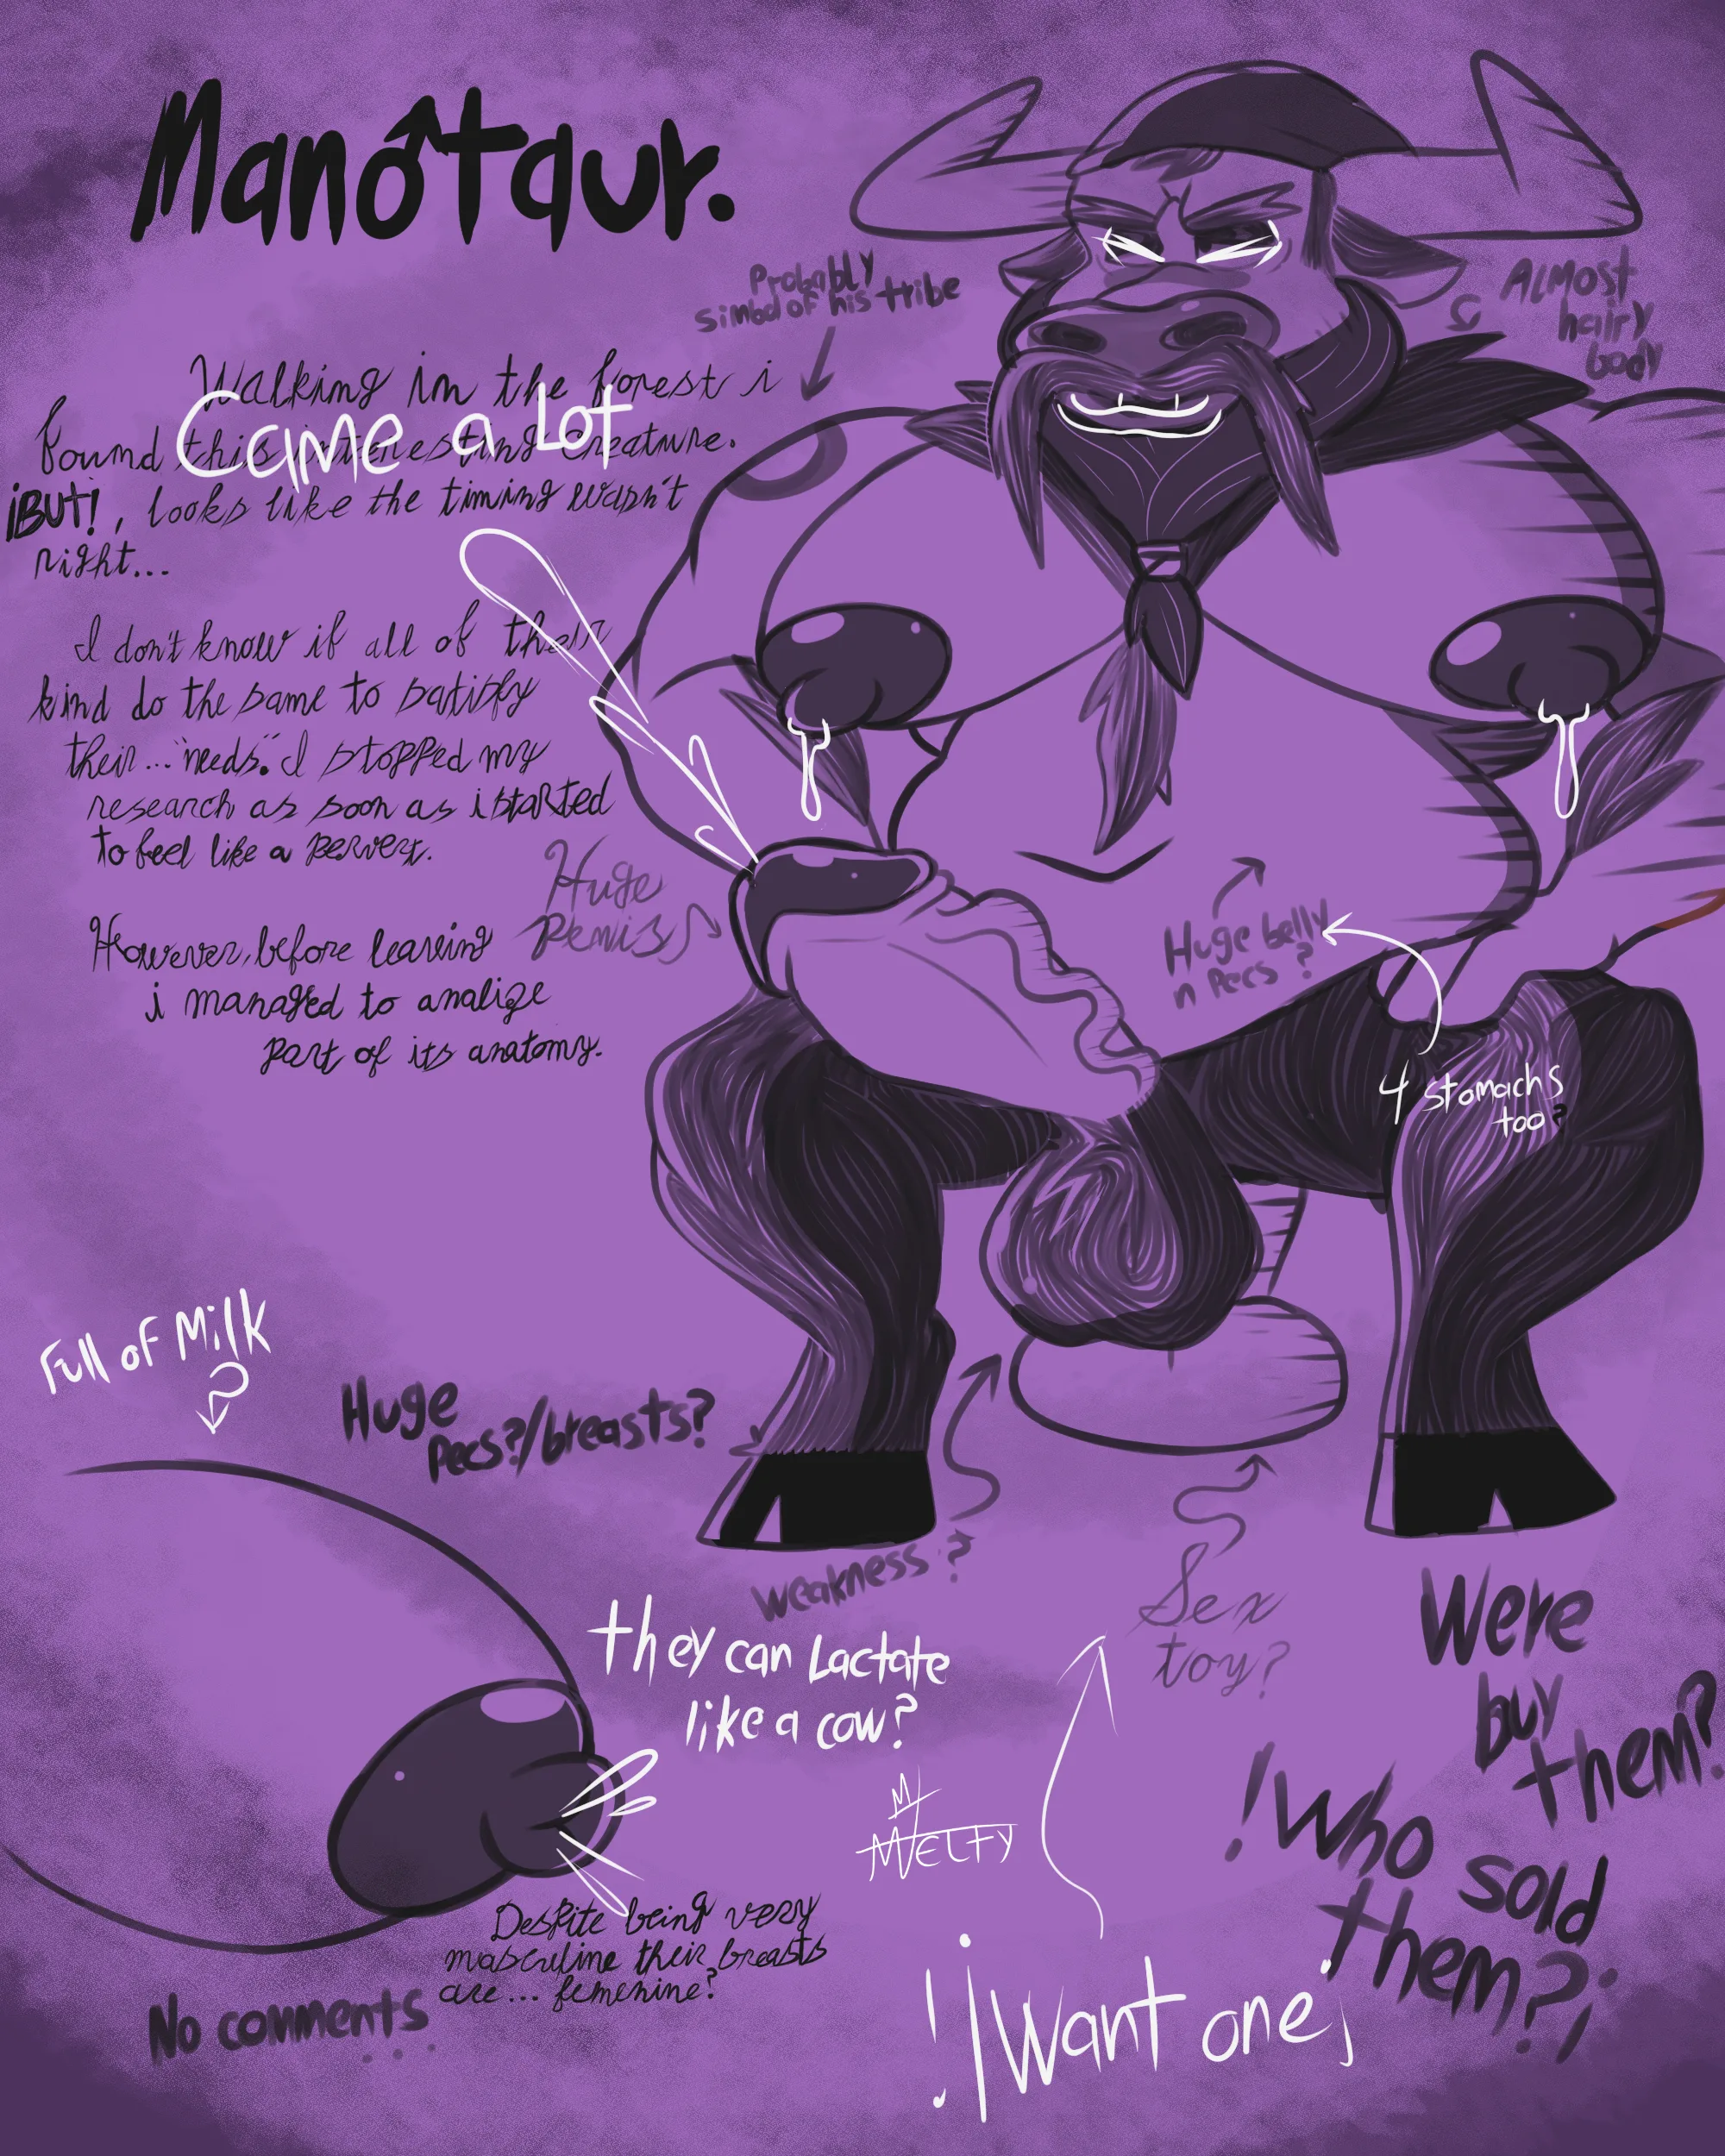 Manotaur.
Probably
simbol of his tribe
ALMOST
hairy
body
Walking in the forest i
found this interesting creature.
Came a Lot
¡BUT!, looks like the timing wasn't
right...
I don't know if all of their
kind do the same to satisfy
their..."needs". I stopped my
research as soon as i started
to feel like a pervert.
Huge
Penis
However, before leaving
i managed to analize
part of its anatomy.
Huge belly
n Pecs ?
4 stomachs
too?
Full of Milk
Huge
Pecs?/breasts?
Weakness ?
Sex
toy?
they can Lactate
like a cow?
Were
buy
them?
!Who sold
them?¡
M
MELFY
Despite being very
masculine their breasts
are... femenine?
No comments
...
!¡Want one¡